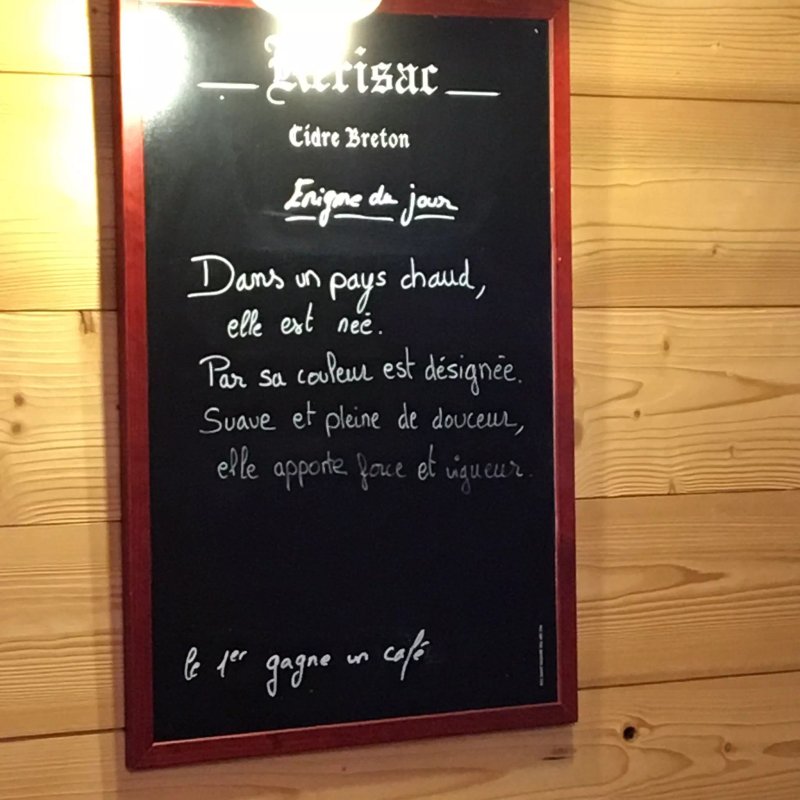 Kerisac
Cidre Breton
Enigme du jour
Dans un pays chaud,
elle est neé.
Par sa couleur est désignée.
Suave et pleine de douceur,
elle apporte force et vigueur.
le 1er gagne un café